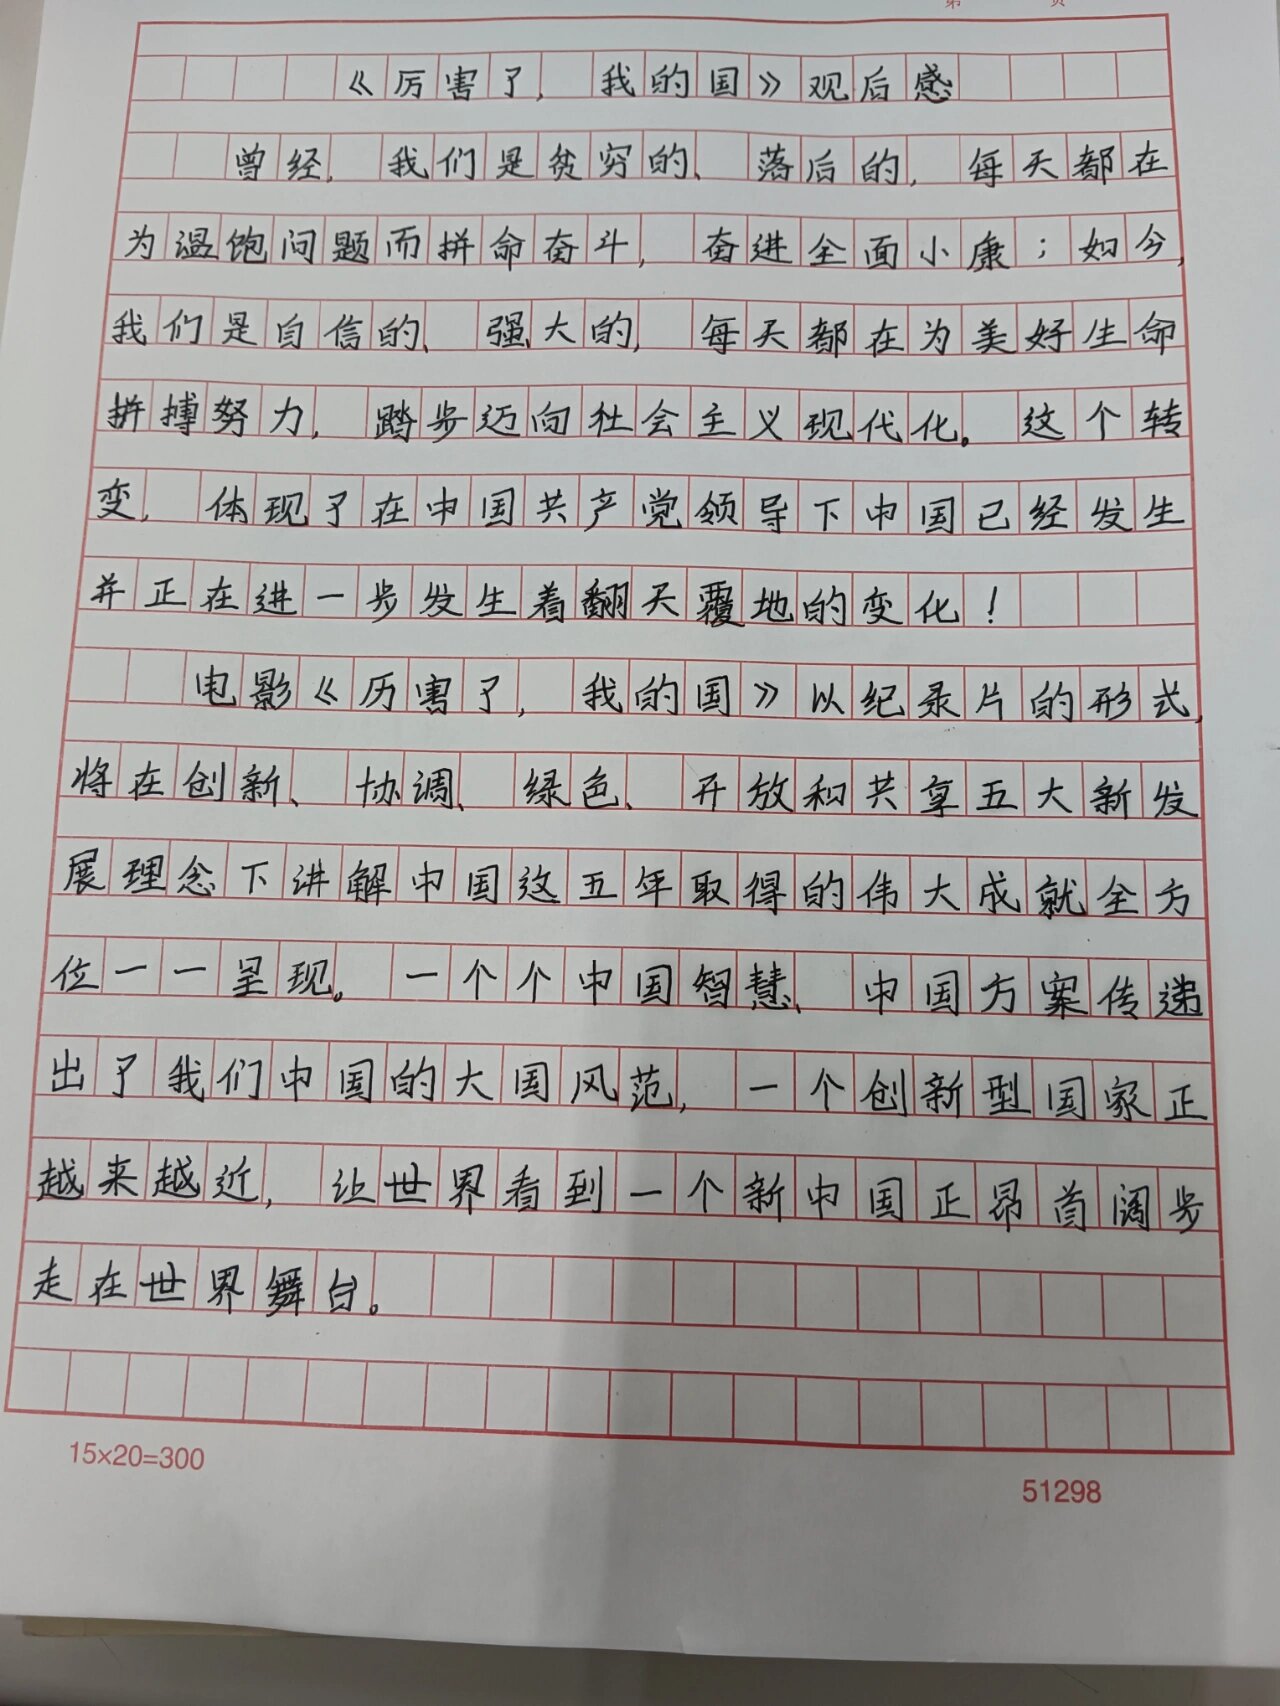 第 页
《厉害了，我的国》观后感
曾经，我们是贫穷的、落后的，每天都在
为温饱问题而拼命奋斗，奋进全面小康；如今，
我们是自信的、强大的，每天都在为美好生命
拼搏努力，踏步迈向社会主义现代化。这个转
变，体现了在中国共产党领导下中国已经发生
并正在进一步发生着翻天覆地的变化！
电影《厉害了，我的国》以纪录片的形式，
将在创新、协调、绿色、开放和共享五大新发
展理念下讲解中国这五年取得的伟大成就全方
位一一呈现。一个个中国智慧、中国方案传递
出了我们中国的大国风范，一个创新型国家正
越来越近，让世界看到一个新中国正昂首阔步
走在世界舞台。
15×20=300
51298